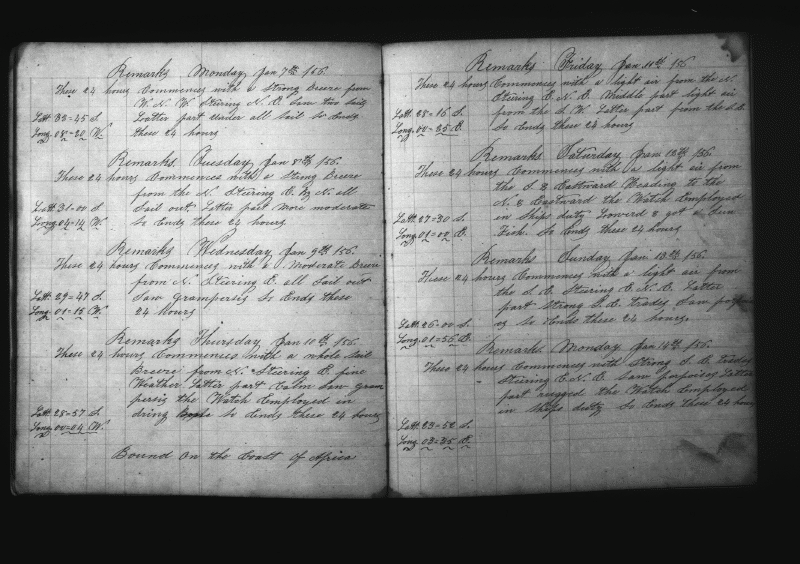 Remarks Monday Jan 7th /56.
These 24 hours Commences with a Strong Breeze from
W. N. W. Stering N. E. Saw two Sail
Latt 33-45 S. Latter part Under all Sail So Ends
Long 08-20 W. these 24 hours
Remarks Tuesday Jan 8th /56.
These 24 hours Commences with a Strong Breeze
from the N. Stering E. by N. all
Latt 31-00 S. Sail out. Latter part More moderate
Long 04-14 W. So Ends these 24 hours
Remarks Wednesday Jan 9th /56.
These 24 hours Commences with a Moderate Breeze
from N. Stering E. all Sail out
Latt 29-47 S. Saw grampersis So Ends these
Long 01-15 W. 24 hours
Remarks Thursday Jan 10th /56.
These 24 hours Commences with a whole Sail
Breeze from N. Stering E. fine
Weather Latter part Calm Saw gram
persis the Watch Employed in
Latt 28-57 S. So Ends these 24 hours
Long 00-04 W.
Bound On the Coast of Africa
Remarks Friday Jan 11th /56.
These 24 hours Commences with a light air from the N.
Stering E. N. E. Middle part light air
Latt 28-16 S. from the S. W. Latter part from the S. E.
Long 00-35 E. So Ends these 24 hours
Remarks Saturday Jan 12th /56.
These 24 hours Commences with a light air from
the S. & Eastward Heading to the
N. & Eastward the Watch Employed
Latt 27-30 S. in Ships duty Lowerd & got a Sun
Long 01-02 E. Fish. So Ends these 24 hours
Remarks Sunday Jan 13th /56.
These 24 hours Commences with a light air from
the S. E. Stering E. N. E. Latter
part Strong S. E. trades Saw
Latt 26-00 S. So Ends these 24 hours
Long 01-56 E.
Remarks Monday Jan 14th /56.
These 24 hours Commences with Strong S. E. trades
Stering E. N. E. Saw porpoises Latter
part rugged the Watch Employed
in Ships duty So Ends these 24 hours
Latt 23-52 S.
Long 03-35 E.